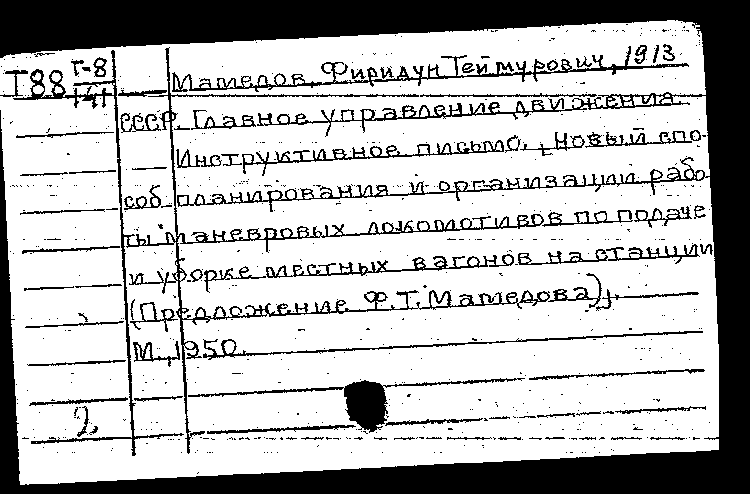 Т88 Г-8
141
Мамедов, Фиридун Теймурович, 1913
СССР. Главное управление движения.
Инструктивное письмо. [Новый спо-
соб планирования и организации рабо-
ты маневровых локомотивов по подаче
и уборке местных вагонов на станции
(Предложение Ф.Т. Мамедова)].
М., 1950.
2